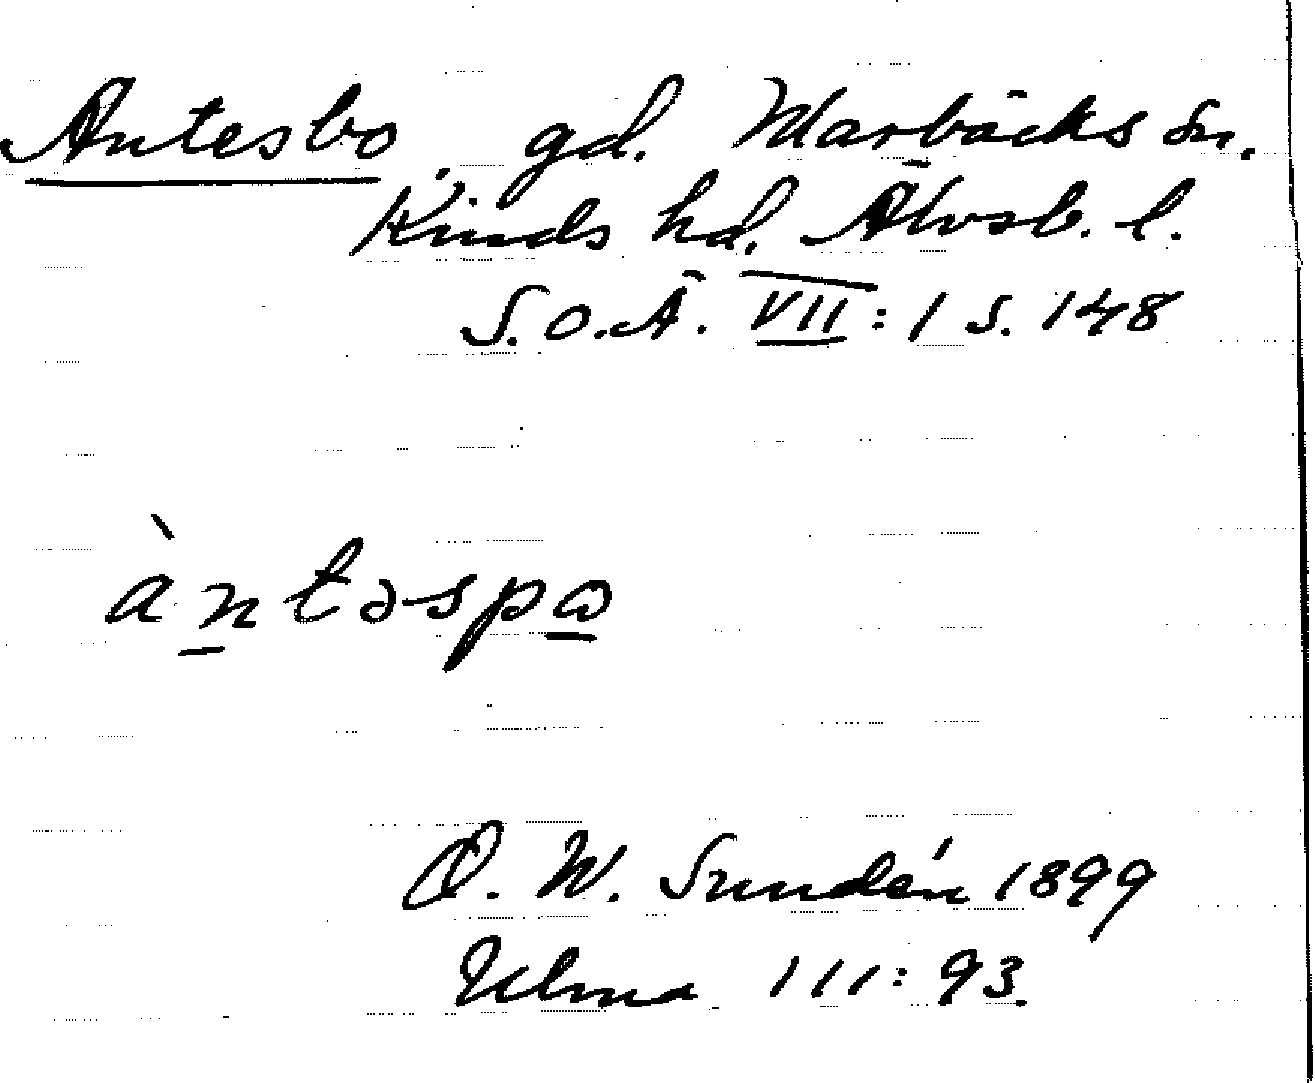 Antesbo, gd. Marbäcks sn.
Kinds hd. Älvsb. l.
S.O.Ä. VII: 1 s. 148
àntəspɷ
D. W. Sundén 1899
Ulma 111:93.